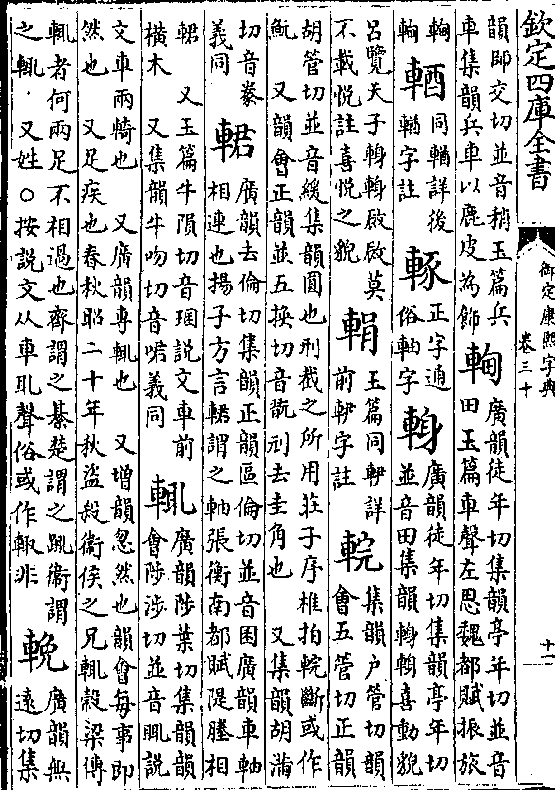 欽定四庫全書
御定康熙字典
卷三十
十一
韻師交切並音稍玉篇兵
車集韻兵車以鹿皮為飾
廣韻徒年切集韻亭年切並音
田玉篇車聲左思魏都賦振旅
輏
同輶詳後
輶字註
正字通
俗軸字
廣韻徒年切集韻亭年切
並音田集韻喜動貌
呂覽天子啟啟莫
不載悅註喜悅之貌
玉篇同詳
前字註
輐
集韻戶管切韻
會五管切正韻
胡管切並音緩集韻圓也刑截之所用莊子序椎拍輐斷或作
魭 又韻會正韻並五換切音翫刓去圭角也 又集韻胡滿
切音豢
義同
輑
廣韻去倫切集韻正韻區倫切並音囷廣韻車軸
相連也揚子方言輑謂之軸張衡南都賦隄塍相
輑 又玉篇牛隕切音說文車前
橫木 又集韻牛吻切音喗義同
輒
廣韻陟葉切集韻韻
會陟涉切並音說
文車兩輢也 又廣韻專輒也 又增韻忽然也韻會每事即
然也 又足疾也春秋昭二十年秋盜殺衛侯之兄輒穀梁傳
輒者何兩足不相過也齊謂之綦楚謂之踂衛謂
之輒 又姓○按說文从車耴聲俗或作輙非
輓
廣韻無
遠切集